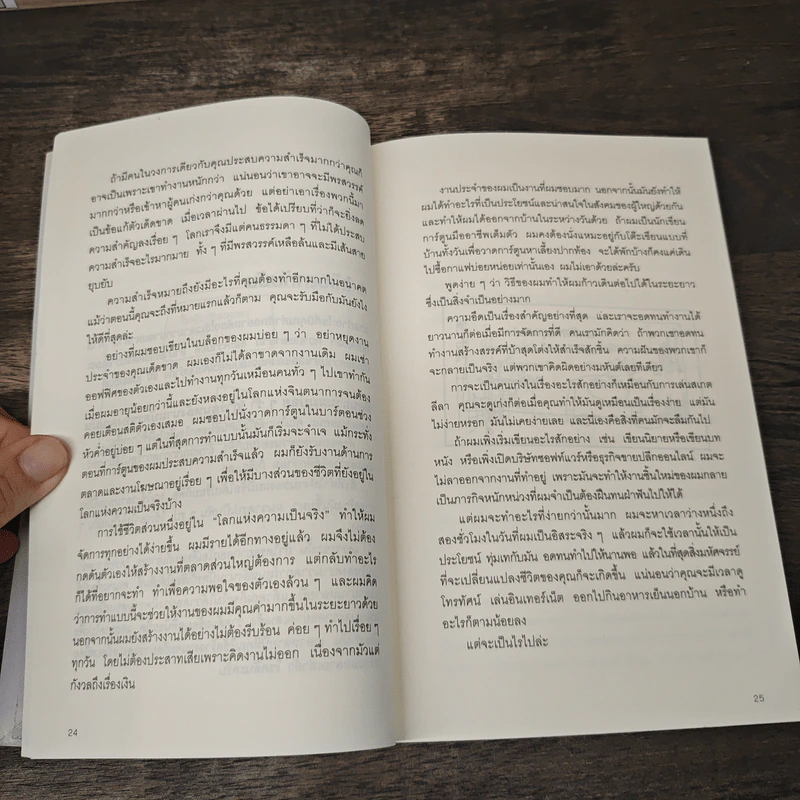 ถ้ามีคนในวงการเดียวกับคุณประสบความสำเร็จมากกว่าคุณก็
อาจเป็นเพราะเขาทำงานหนักกว่า แน่นอนว่าเขาอาจจะมีพรสวรรค์
มากกว่าหรือเข้าหาผู้คนเก่งกว่าคุณด้วย แต่อย่าเอาเรื่องพวกนี้มา
เป็นข้อแก้ตัวเด็ดขาด เมื่อเวลาผ่านไป ข้อได้เปรียบที่ว่าก็จะยิ่งลด
ความสำคัญลงเรื่อย ๆ โลกเราจึงมีแต่คนธรรมดา ๆ ที่ไม่ได้ประสบ
ความสำเร็จอะไรมากมาย ทั้ง ๆ ที่มีพรสวรรค์เหลือล้นและมีเส้นสาย
ยุบยับ
ความสำเร็จหมายถึงยังมีอะไรที่คุณต้องทำอีกมากในอนาคต
แม้ว่าตอนนี้คุณจะถึงที่หมายแรกแล้วก็ตาม คุณจะรับมือกับมันยังไง
ให้ดีที่สุดล่ะ
อย่างที่ผมชอบเขียนในบล็อกของผมบ่อย ๆ ว่า อย่าหยุดงาน
ประจำของคุณเด็ดขาด ผมเองก็ไม่ได้ลาขาดจากงานเดิม ผมเช่า
ออฟฟิศของตัวเองและไปทำงานทุกวันเหมือนคนทั่ว ๆ ไปเขาทำกัน
เมื่อผมอายุน้อยกว่านี้และยังหลงอยู่ในโลกแห่งจินตนาการจนต้อง
คอยเตือนสติตัวเองเสมอ ผมชอบไปนั่งวาดการ์ตูนในบาร์ตอนช่วง
หัวค่ำอยู่บ่อย ๆ แต่ในที่สุดการทำแบบนั้นมันก็เริ่มจะจำเจ แม้กระทั่ง
ตอนที่การ์ตูนของผมประสบความสำเร็จแล้ว ผมก็ยังรับงานด้านการ
ตลาดและงานโฆษณาอยู่เรื่อย ๆ เพื่อให้มีบางส่วนของชีวิตที่ยังอยู่ใน
โลกแห่งความเป็นจริงบ้าง
การใช้ชีวิตส่วนหนึ่งอยู่ใน "โลกแห่งความเป็นจริง" ทำให้ผม
จัดการทุกอย่างได้ง่ายขึ้น ผมมีรายได้อีกทางอยู่แล้ว ผมจึงไม่ต้อง
กดดันตัวเองให้สร้างงานที่ตลาดส่วนใหญ่ต้องการ แต่กลับทำอะไร
ก็ได้ที่อยากจะทำ ทำเพื่อความพอใจของตัวเองล้วน ๆ และผมคิด
ว่าการทำแบบนี้จะช่วยให้งานของผมมีคุณค่ามากขึ้นในระยะยาวด้วย
นอกจากนั้นผมยังสร้างงานได้อย่างไม่ต้องรีบร้อน ค่อย ๆ ทำไปเรื่อย ๆ
ทุกวัน โดยไม่ต้องประสาทเสียเพราะคิดงานไม่ออก เนื่องจากมัวแต่
กังวลถึงเรื่องเงิน
24
งานประจำของผมเป็นงานที่ผมชอบมาก นอกจากนั้นมันยังทำให้
ผมได้ทำอะไรที่เป็นประโยชน์และน่าสนใจในสังคมของผู้ใหญ่ด้วยกัน
และทำให้ผมได้ออกจากบ้านในระหว่างวันด้วย ถ้าผมเป็นนักเขียน
การ์ตูนมืออาชีพเต็มตัว ผมคงต้องนั่งแหมะอยู่กับโต๊ะเขียนแบบที่
บ้านทั้งวันเพื่อวาดการ์ตูนหาเลี้ยงปากท้อง จะได้พักบ้างก็คงแค่เดิน
ไปซื้อกาแฟบ่อยหน่อยเท่านั้นเอง ผมไม่เอาด้วยล่ะครับ
พูดง่าย ๆ ว่า วิธีของผมทำให้ผมก้าวเดินต่อไปได้ในระยะยาว
ซึ่งเป็นสิ่งจำเป็นอย่างมาก
ความอึดเป็นเรื่องสำคัญอย่างที่สุด และเราจะอดทนทำงานได้
ยาวนานก็ต่อเมื่อมีการจัดการที่ดี คนเรามักคิดว่า ถ้าพวกเขาอดทน
ทำงานสร้างสรรค์ที่บ้าสุดโต่งให้สำเร็จสักชิ้น ความฝันของพวกเขาก็
จะกลายเป็นจริง แต่พวกเขาคิดผิดอย่างมหันต์เลยทีเดียว
การจะเป็นคนเก่งในเรื่องอะไรสักอย่างก็เหมือนกับการเล่นสเกต
ลีลา คุณจะดูเก่งก็ต่อเมื่อคุณทำให้มันดูเหมือนเป็นเรื่องง่าย แต่มัน
ไม่ง่ายหรอก มันไม่เคยง่ายเลย และนี่เองคือสิ่งที่คนมักจะลืมกันไป
ถ้าผมเพิ่งเริ่มเขียนอะไรสักอย่าง เช่น เขียนนิยายหรือเขียนบท
หนัง หรือเพิ่งเปิดบริษัทซอฟท์แวร์หรือธุรกิจขายปลีกออนไลน์ ผมจะ
ไม่ลาออกจากงานที่ทำอยู่ เพราะมันจะทำให้งานชิ้นใหม่ของผมกลาย
เป็นภารกิจหนักหน่วงที่ผมจำเป็นต้องฝืนทนฝ่าฟันไปให้ได้
แต่ผมจะทำอะไรที่ง่ายกว่านั้นมาก ผมจะหาเวลาว่างหนึ่งถึง
สองชั่วโมงในวันที่ผมเป็นอิสระจริง ๆ แล้วผมก็จะใช้เวลานั้นให้เป็น
ประโยชน์ ทุ่มเทกับมัน อดทนทำไปให้นานพอ แล้วในที่สุดสิ่งมหัศจรรย์
ที่จะเปลี่ยนแปลงชีวิตของคุณก็จะเกิดขึ้น แน่นอนว่าคุณจะมีเวลาดู
โทรทัศน์ เล่นอินเทอร์เน็ต ออกไปกินอาหารเย็นนอกบ้าน หรือทำ
อะไรก็ตามน้อยลง
แต่จะเป็นไรไปล่ะ
25